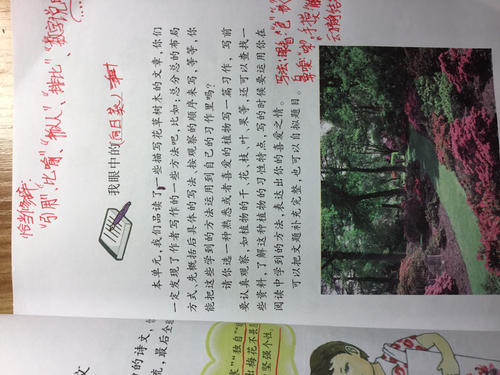 恰到好处:
"引用"、"比喻"、"拟人"、"排比"、"数字说
我眼中的(向日葵)
本单元,我们品读了一些描写花草树木的文章,你们
一定发现了作者写作的一些方法吧,比如:总分总的布局
方式、先概括后具体的写法、按观察的顺序来写,等等,你
能把这些学到的方法运用到自己的习作里吗?
请你选一种熟悉或者喜爱的植物写一篇习作,写前
要认真观察,如植物的干、花、枝、叶、果等,还可以查找一
些资料,了解这种植物的习性特点,写的时候要运用你在
阅读中学到的方法,表达出你的喜爱之情。
可以把文题补充完整,也可以自拟题目。
文
的诗文,
最后全
"独自"
梅花不畏
坚强个性。